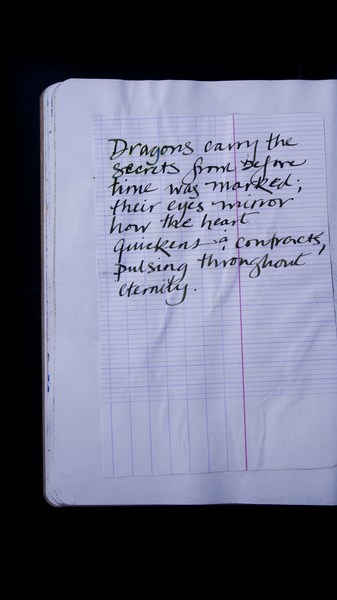 Dragons carry the
secrets from before
time was marked;
their eyes mirror
how the heart
quickens & contracts,
pulsing throughout
eternity.